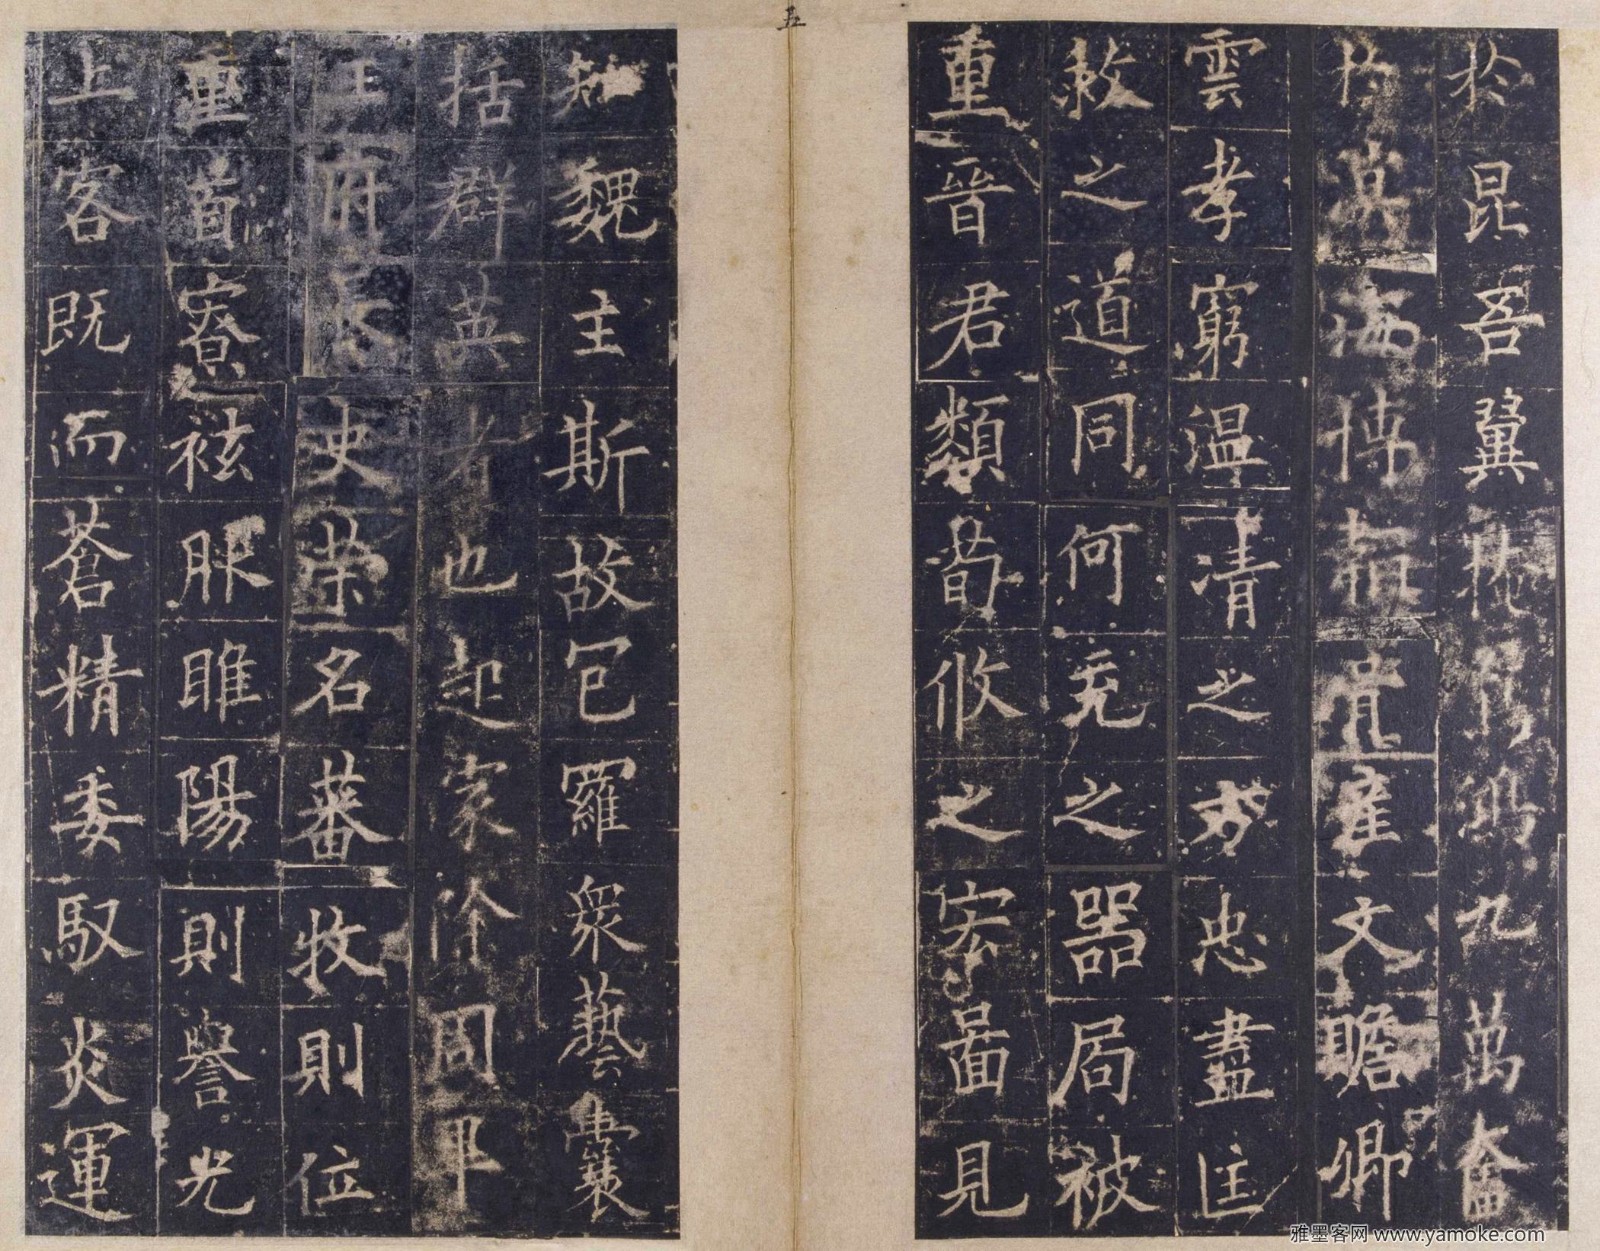 於昆吾翼鴻九萬奮
於海博韜產文瞻卿
雲孝窮温凊之方忠盡匡
救之道同何充之器局被
重晉君類荀攸之宏圖見
知魏主斯故包羅衆藝囊
括群英者也起家除周畢
王府長史榮名蕃牧則位
重首寮袨服睢陽則譽光
上客既而蒼精委馭炎運
五
雅墨客网 www.yamoke.com